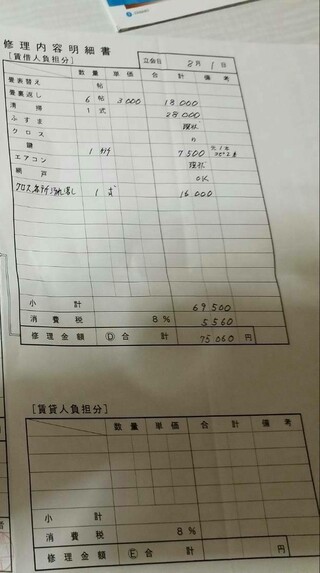 修理内容明細書
[賃借人負担分]
立会日 8月1日
数量 単価 合計 備考
畳表替え 帖
畳裏返し 6帖 3000 18000
清掃 1式 28000
ふすま 現状
クロス 〃
鍵 1 7500
エアコン 現状
網戸 OK
クロス 1 16000
小計 69500
消費税 8% 5560
修理金額 Ⓓ合計 75060円
[賃貸人負担分]
数量 単価 合計 備考
小計
消費税 8%
修理金額 Ⓔ合計 円